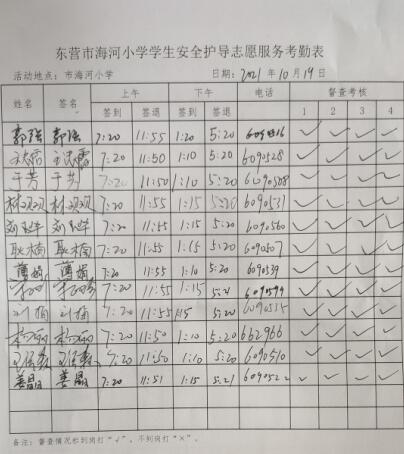 东营市海河小学学生安全护导志愿服务考勤表
活动地点：市海河小学 日期：2021年10月19日
姓名 签名 上午 下午 电话 督查考核
签到 签退 签到 签退 1 2 3 4
郭强 郭强 7:20 11:55 1:20 5:20 ✓ ✓ ✓ ✓
7:20 11:50 1:10 5:20 6090528 ✓ ✓ ✓ ✓
于芳 于芳 7:20 11:50 1:10 5:20 6090508 ✓ ✓ ✓ ✓
林双双 林双双 7:20 11:55 1:15 5:20 6090531 ✓ ✓ ✓ ✓
7:20 11:55 1:15 5:20 6090560 ✓ ✓ ✓ ✓
耿楠 耿楠 7:20 11:55 1:15 5:20 6090507 ✓ ✓ ✓ ✓
7:20 11:55 1:10 5:20 6090539 ✓ ✓ ✓ ✓
7:20 11:55 1:15 5:21 6090599 ✓ ✓ ✓ ✓
刘楠 刘楠 7:20 11:55 1:15 5:20 6090535 ✓ ✓ ✓ ✓
杨丽 杨丽 7:20 11:50 1:10 5:20 662966 ✓ ✓ ✓ ✓
7:20 11:50 1:10 5:20 6090510 ✓ ✓ ✓ ✓
姜晶 姜晶 7:20 11:51 1:15 5:21 6090522 ✓ ✓ ✓ ✓
备注：督查情况栏到岗打“✓”，不到岗打“×”。